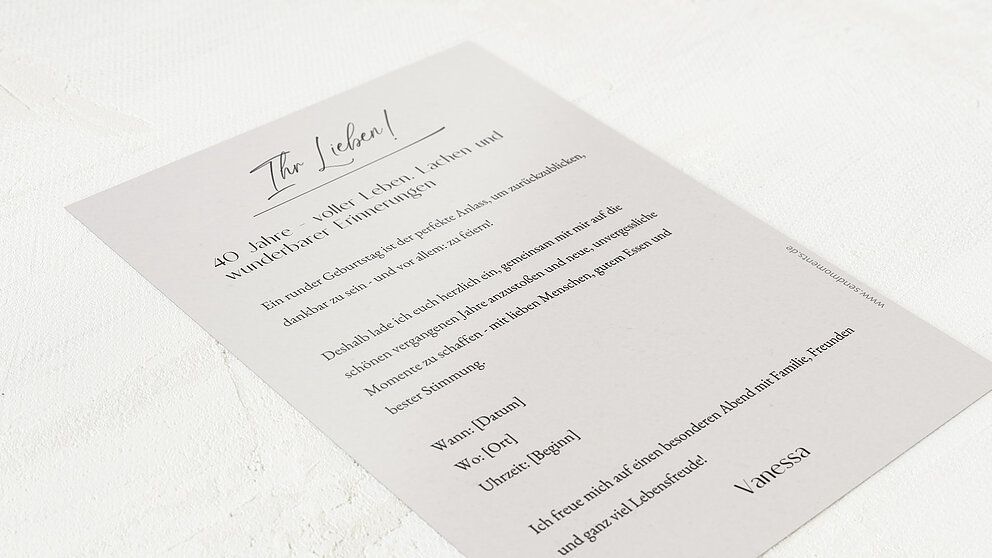 Ihr Lieben!
40 Jahre - voller Leben, Lachen und
wunderbarer Erinnerungen
Ein runder Geburtstag ist der perfekte Anlass, um zurückzublicken,
dankbar zu sein - und vor allem: zu feiern!
Deshalb lade ich euch herzlich ein, gemeinsam mit mir auf die
schönen vergangenen Jahre anzustoßen und neue, unvergessliche
Momente zu schaffen - mit lieben Menschen, gutem Essen und
bester Stimmung.
Wann: [Datum]
Wo: [Ort]
Uhrzeit: [Beginn]
Ich freue mich auf einen besonderen Abend mit Familie, Freunden
und ganz viel Lebensfreude!
Vanessa
www.sendmoments.de